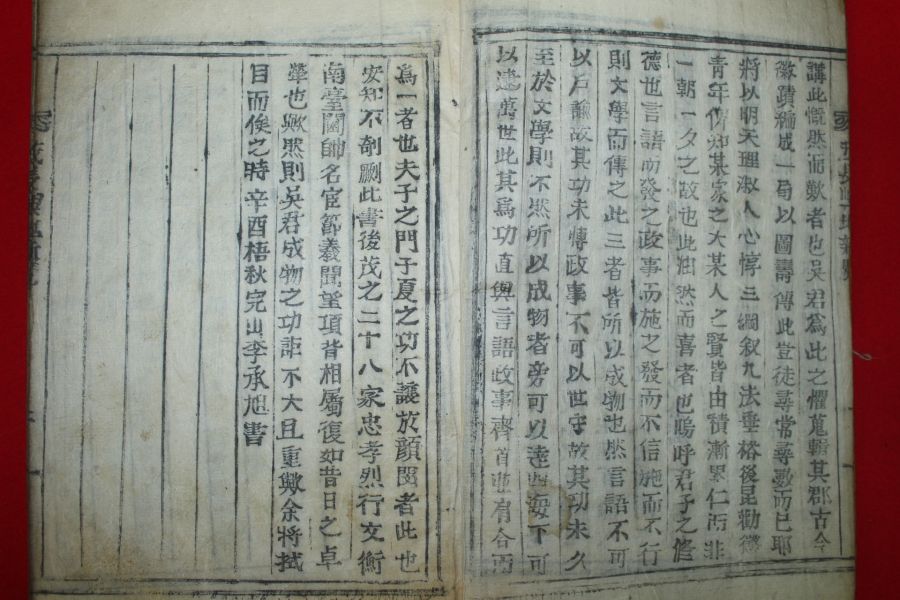 講此慨然而歎者也吳君爲此之懼蒐輯其郡古今
徽蹟編成一局以圖壽傳此豈徒尋常尋數而已耶
將以明天理淑人心惇三綱叙九法垂格後昆勸懲
靑年俾知某家之大某人之賢皆由積漸累仁而非
一朝一夕之故也此油然而喜者也嗚呼君子之修
德也言語而發之政事而施之發而不信施而不行
則文學而傳之此三者皆所以成物也然言語不可
以戶諭故其功未博政事不可以世守故其功未久
至於文學則不然所以成物者旁可以達四海下可
以逮萬世此其爲功直與言語政事齊首並有合而
爲一者也夫子之門子夏之功不讓於顔閔者此也
安知不剞劂此書後茂之二十八家忠孝烈行文衡
南臺閫帥名宦節義聞望項背相屬復如昔日之卓
犖也歟然則吳君成物之功詎不大且重歟余將拭
目而俟之時辛酉梧秋完山李承旭書